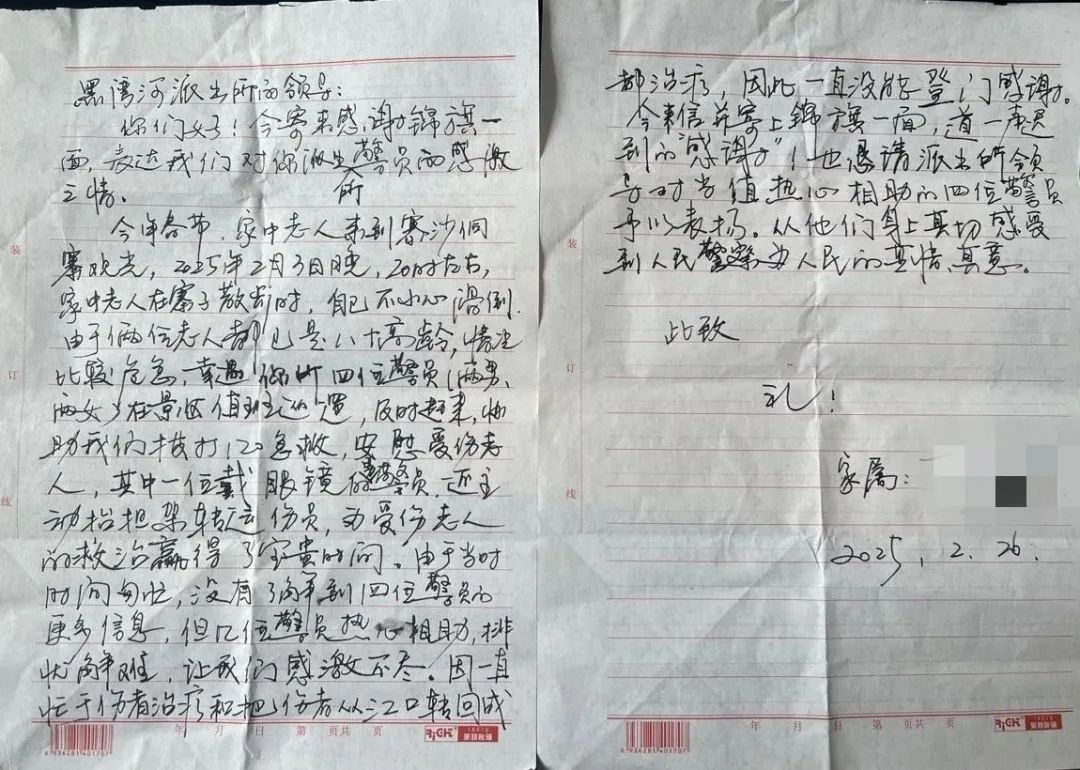 黑湾河派出所的领导：
你们好！今寄来感谢锦旗一
面，表达我们对你派出所警员的感激
之情。
今年春节，家中老人来到寨沙侗
寨观光，2025年2月3日晚，20时左右，
家中老人在寨子散步时，自己不小心滑倒.
由于俩位老人都已是八十高龄，情况
比较危急，幸遇你所四位警员（两男、
两女）在景区值班巡逻，及时赶来，协
助我们拨打120急救，安慰受伤老
人，其中一位戴眼镜的警员，还主
动抬担架转运伤员，为受伤老人
的救治赢得了宝贵时间。由于当时
时间匆忙，没有了解到四位警员的
更多信息，但几位警员热心相助，排
忧解难，让我们感激不尽。因一直
忙于伤者治疗和把伤者从江口转回成
装
订
线
年 月 日 第 页共 页
RiGH
16018
6936281401707
都治疗，因此一直没能登门感谢。
今来信并寄上锦旗一面，道一声迟
到的“感谢”！也恳请派出所领
导对当值热心相助的四位警员
予以表扬。从他们身上真切感受
到人民警察为人民的真情真意。
此致
礼！
家属：
2025，2.26.
装
订
线
年 月 日 第 页共 页
RiGH
16018
6936281401707